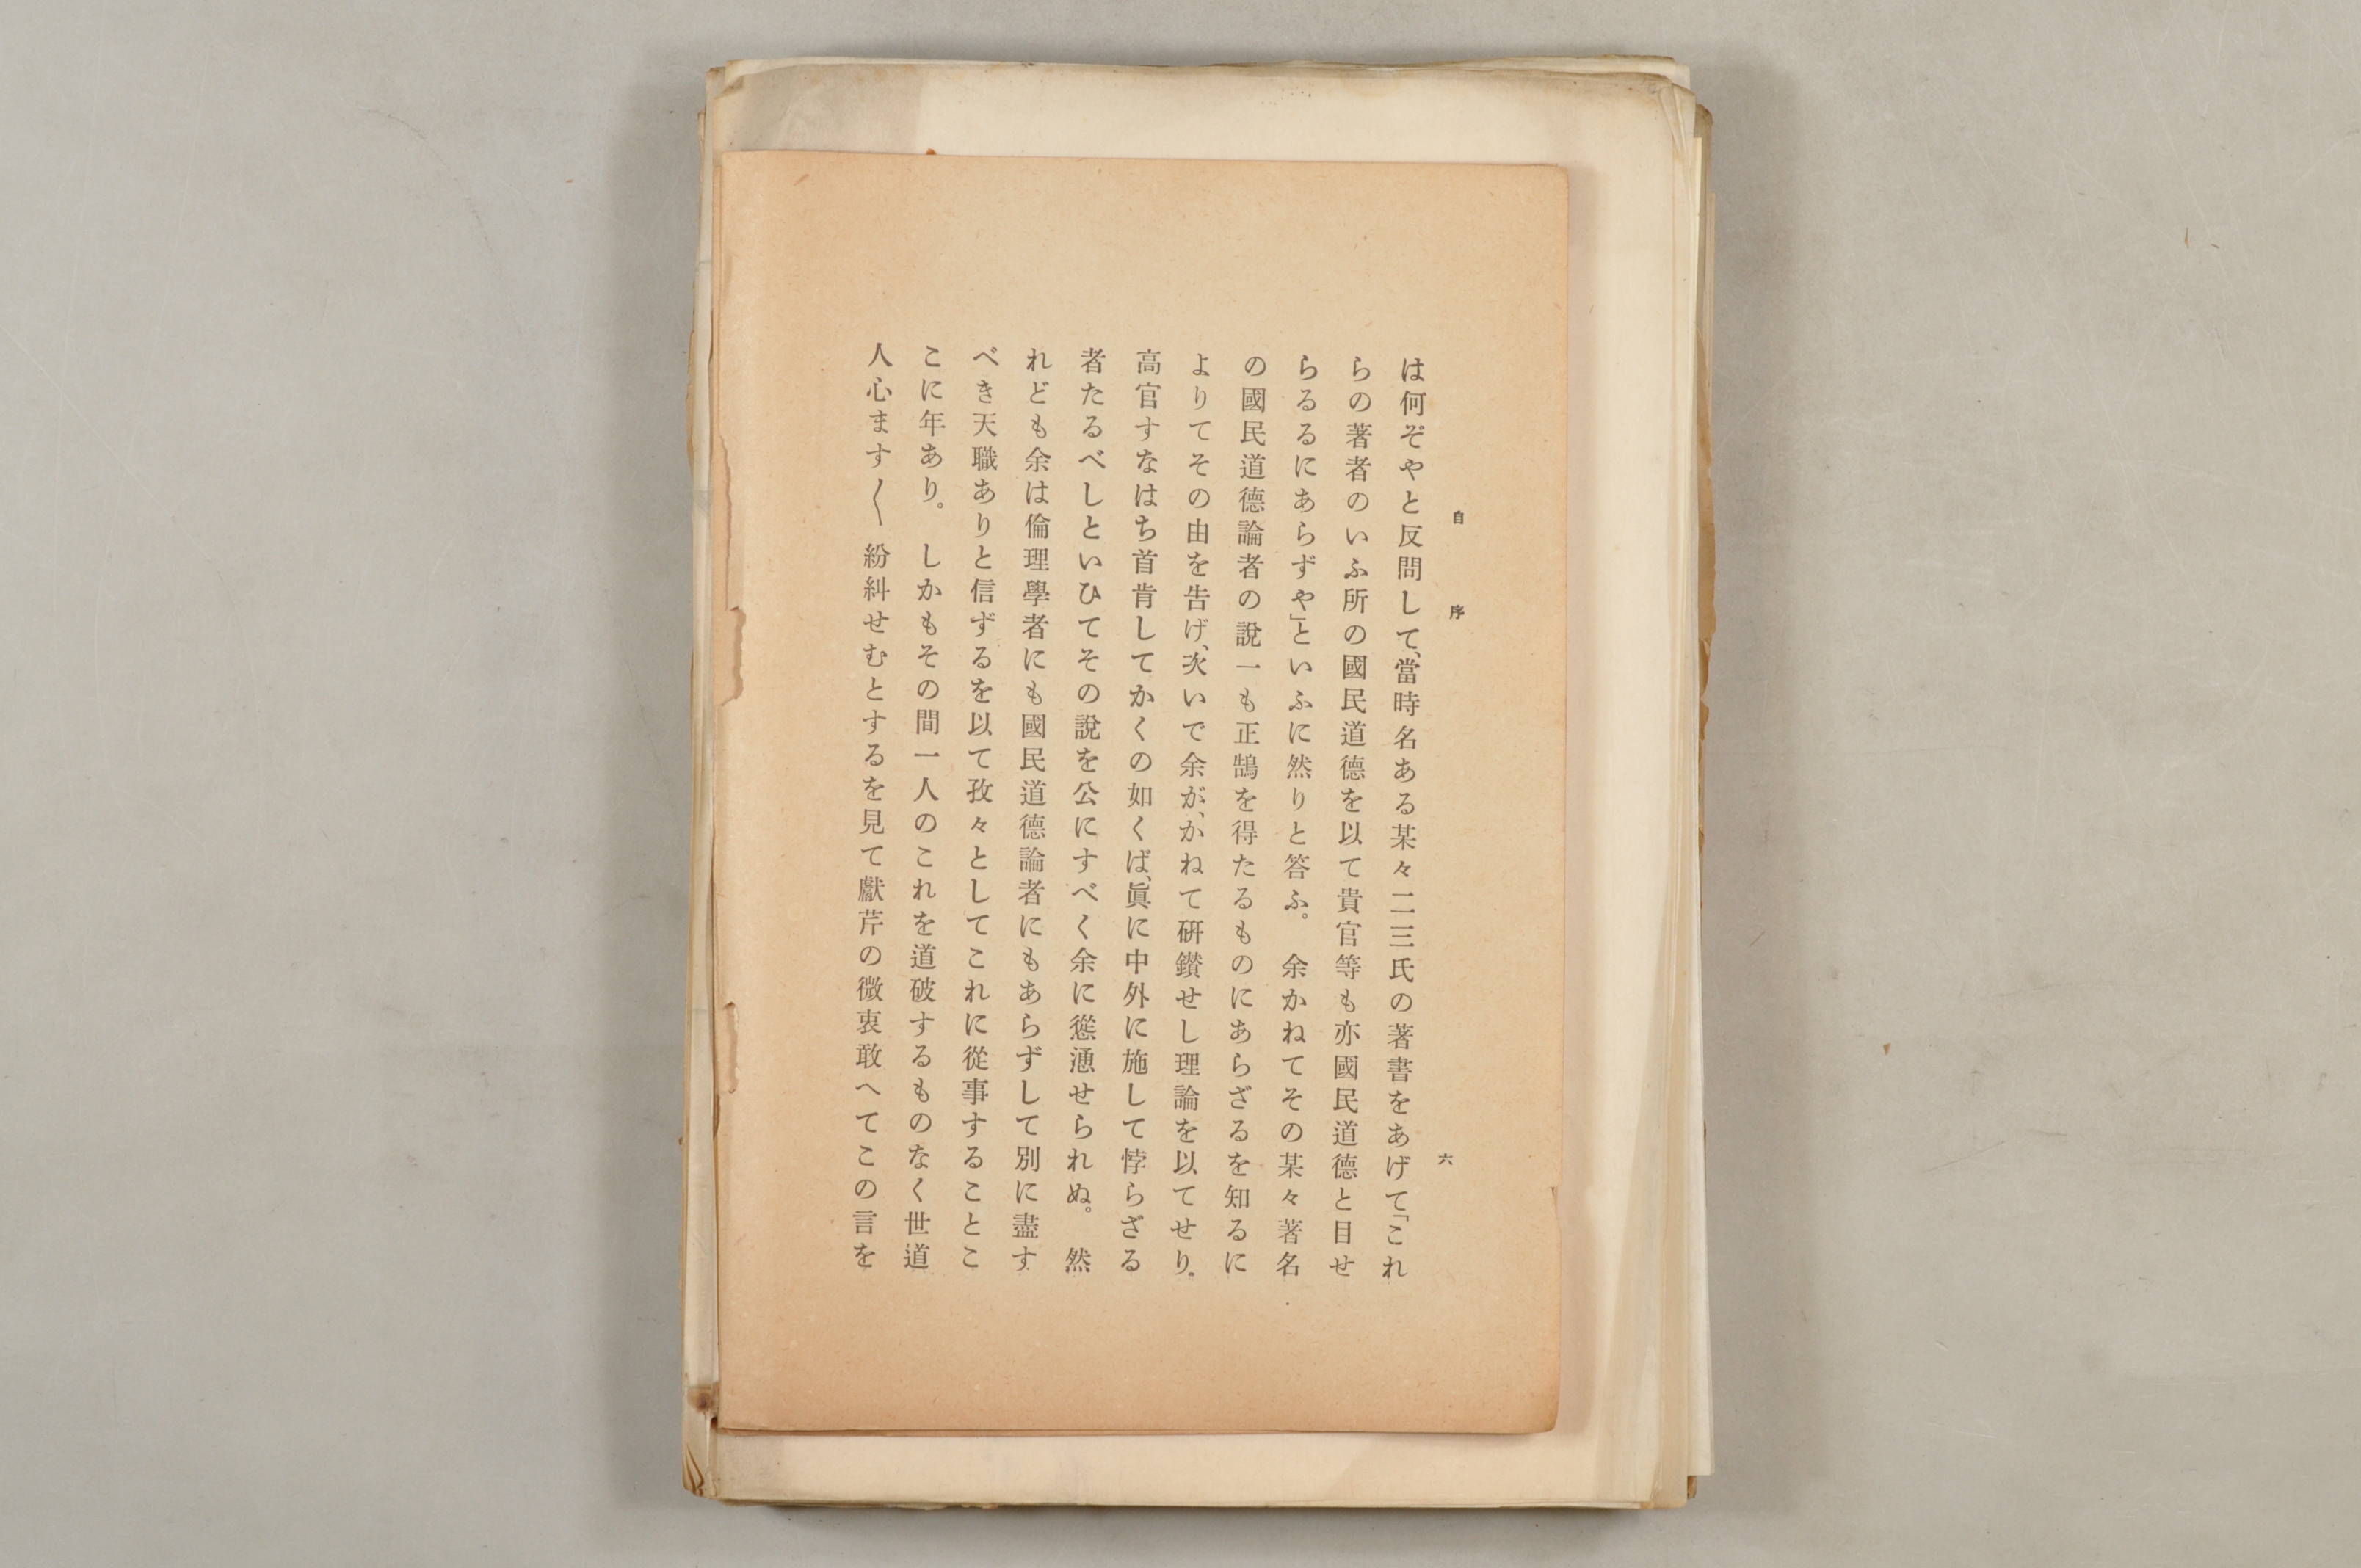 自序
六
は何ぞやと反問して、當時名ある某々二三氏の著書をあげて「これ
らの著者のいふ所の國民道德を以て貴官等も亦國民道德と目せ
らるるにあらずや」といふに然りと答ふ。　余かねてその某々著名
の國民道德論者の說一も正鵠を得たるものにあらざるを知るに
よりてその由を告げ、次いで余が、かねて硏鑽せし理論を以てせり。
高官すなはち首肯してかくの如くば、眞に中外に施して悖らざる
者たるべしといひてその說を公にすべく余に慫慂せられぬ。　然
れども余は倫理學者にも國民道德論者にもあらずして別に盡す
べき天職ありと信ずるを以て孜々としてこれに從事することこ
こに年あり。　しかもその間一人のこれを道破するものなく世道
人心ます〱紛糾せむとするを見て獻芹の微衷敢へてこの言を